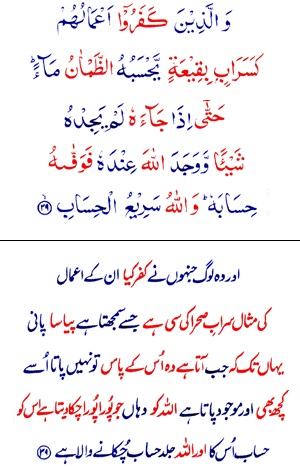 وَالَّذِيۡنَ كَفَرُوۡۤا اَعۡمَالُهُمۡ
كَسَرَابٍۭ بِقِيۡعَةٍ يَّحۡسَبُهُ الظَّمۡاٰنُ مَآءًؕ
حَتّٰۤى اِذَا جَآءَهٗ لَمۡ يَجِدۡهُ
شَيۡـًٔـا وَّ وَجَدَ اللّٰهَ عِنۡدَهٗ فَوَفّٰٮهُ
حِسَابَهٗ‌ؕ وَاللّٰهُ سَرِيۡعُ الۡحِسَابِۙ‏ ﴿۳۹﴾
اور وہ لوگ جنہوں نے کفر کیا ان کے اعمال
کی مثال سراب صحرا کی سی ہے جسے سمجھتا ہے پیاسا پانی
یہاں تک کہ جب آتا ہے وہ اُس کے پاس تو نہیں پاتا اُسے
کچھ بھی اور موجود پاتا ہے اللہ کو وہاں جو پُورا پُورا چکا دیتا ہے اس کو
حساب اُس کا اور اللہ جلد حساب چُکانے والا ہے ﴿۳۹﴾